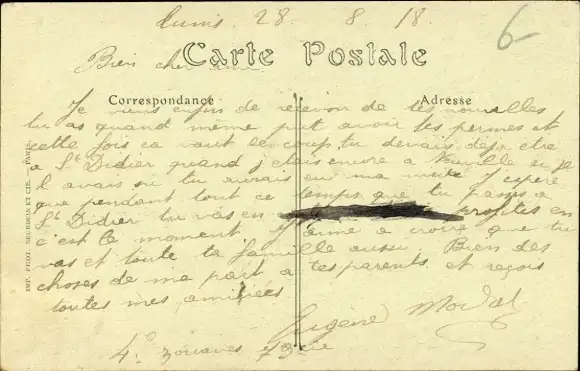 Tunis. 28 8 18
6
Carte Postale
Bien cher ami
Correspondance
Adresse
Je viens enfin de recevoir de tes nouvelles
tu as quand même put avoir tes permes et
cette fois ca vaut le coup, tu devais deja etre
a St Didier quand j etais encore a Neuville si je
l avais su tu aurais eu ma visite J espere
que pendant tout ce temps que tu passes a
St Didier tu vas en profiter en
c'est le moment j'aime a croire que tu
vas et toute ta famille aussi. Bien des
choses de ma part a tes parents et reçois
toutes mes amitiées
Eugène
4e Zouaves 43 cie
IMP. PHOT. NEURDEIN ET CIE. — PARIS